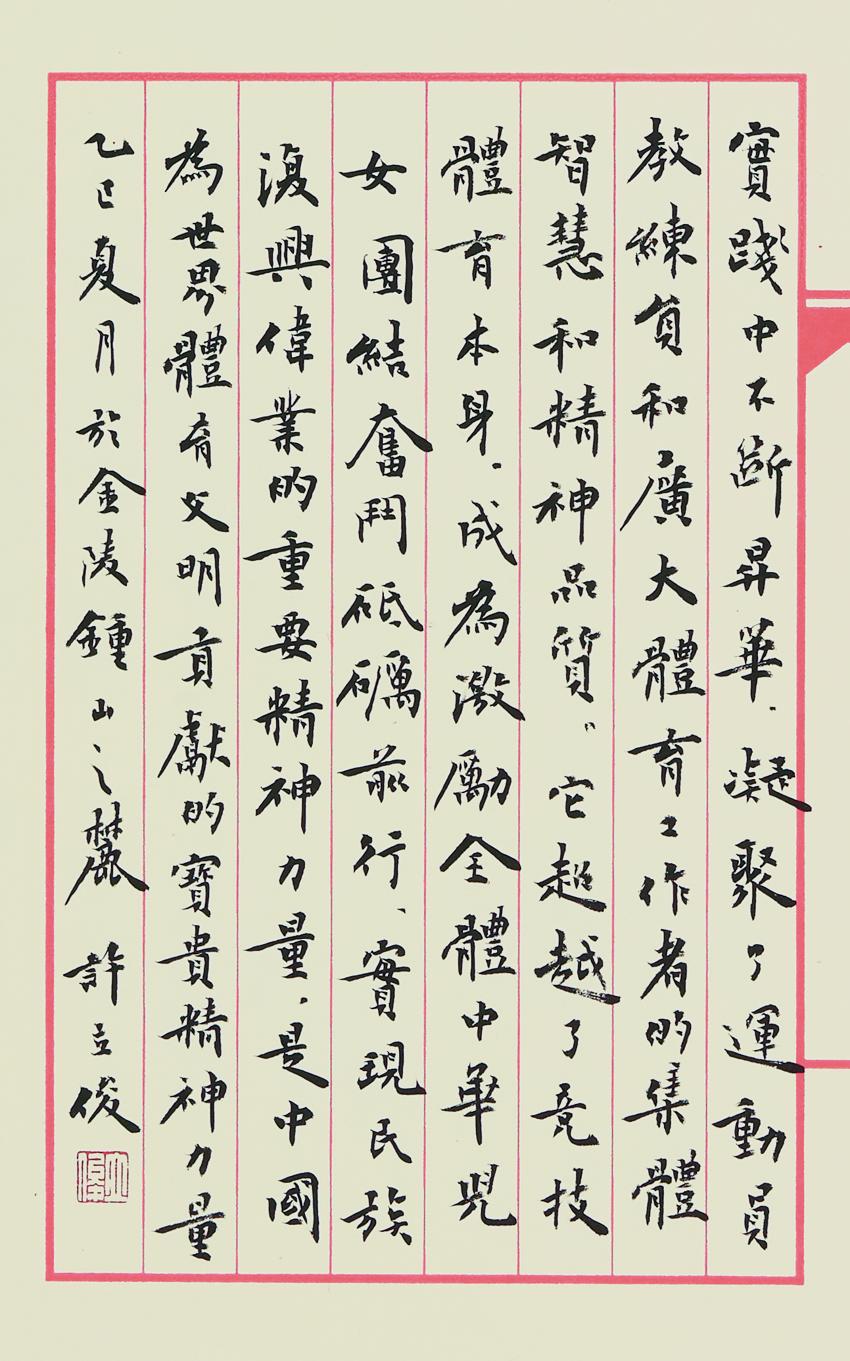 實踐中不斷昇華.凝聚了運動員
教練員和廣大體育工作者的集體
智慧和精神品質。它超越了競技
體育本身.成為激勵全體中華兒
女團結奮鬥砥礪前行、實現民族
復興偉業的重要精神力量.是中國
為世界體育文明貢獻的寶貴精神力量
乙巳夏月於金陵鍾山之麓 許立俊
立俊